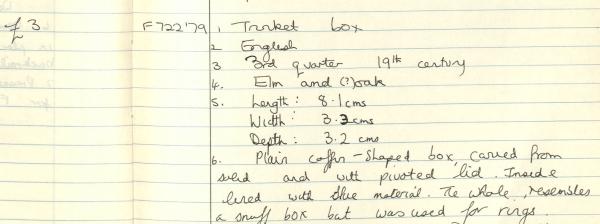 £3 F722'79 1. Trinket box
2 English
3 3rd quarter 19th century
4. Elm and (?)oak
5. Length: 8.1cms
Width: 3.3cms
Depth: 3.2 cms
6. Plain coffin-shaped box, carved from
solid and with pivoted lid. Inside
lined with blue material. The whole resembles
a snuff box but was used for rings.